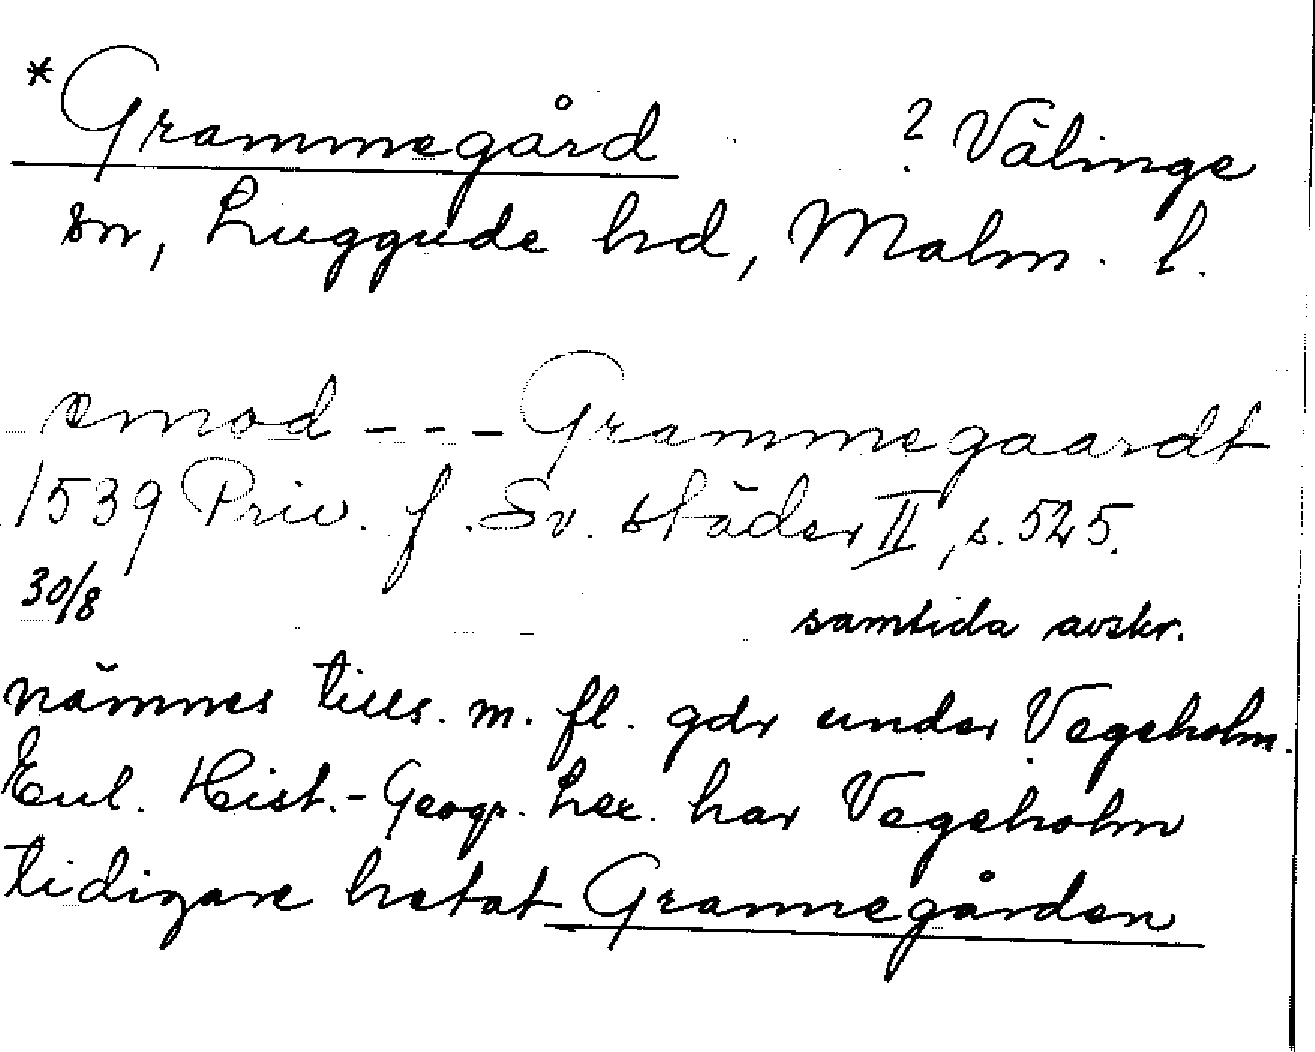 *Grammegård ? Välinge
sn, Luggude hd, Malm. l.
emod - - - Grammegaardt
1539 Priv. f. Sv. städer II, s. 525.
30/8 samtida avskr.
nämnes tills. m. fl. gdr under Vegeholm.
Enl. Hist.-Geogr. Lex. har Vegeholm
tidigare hetat Grannegården